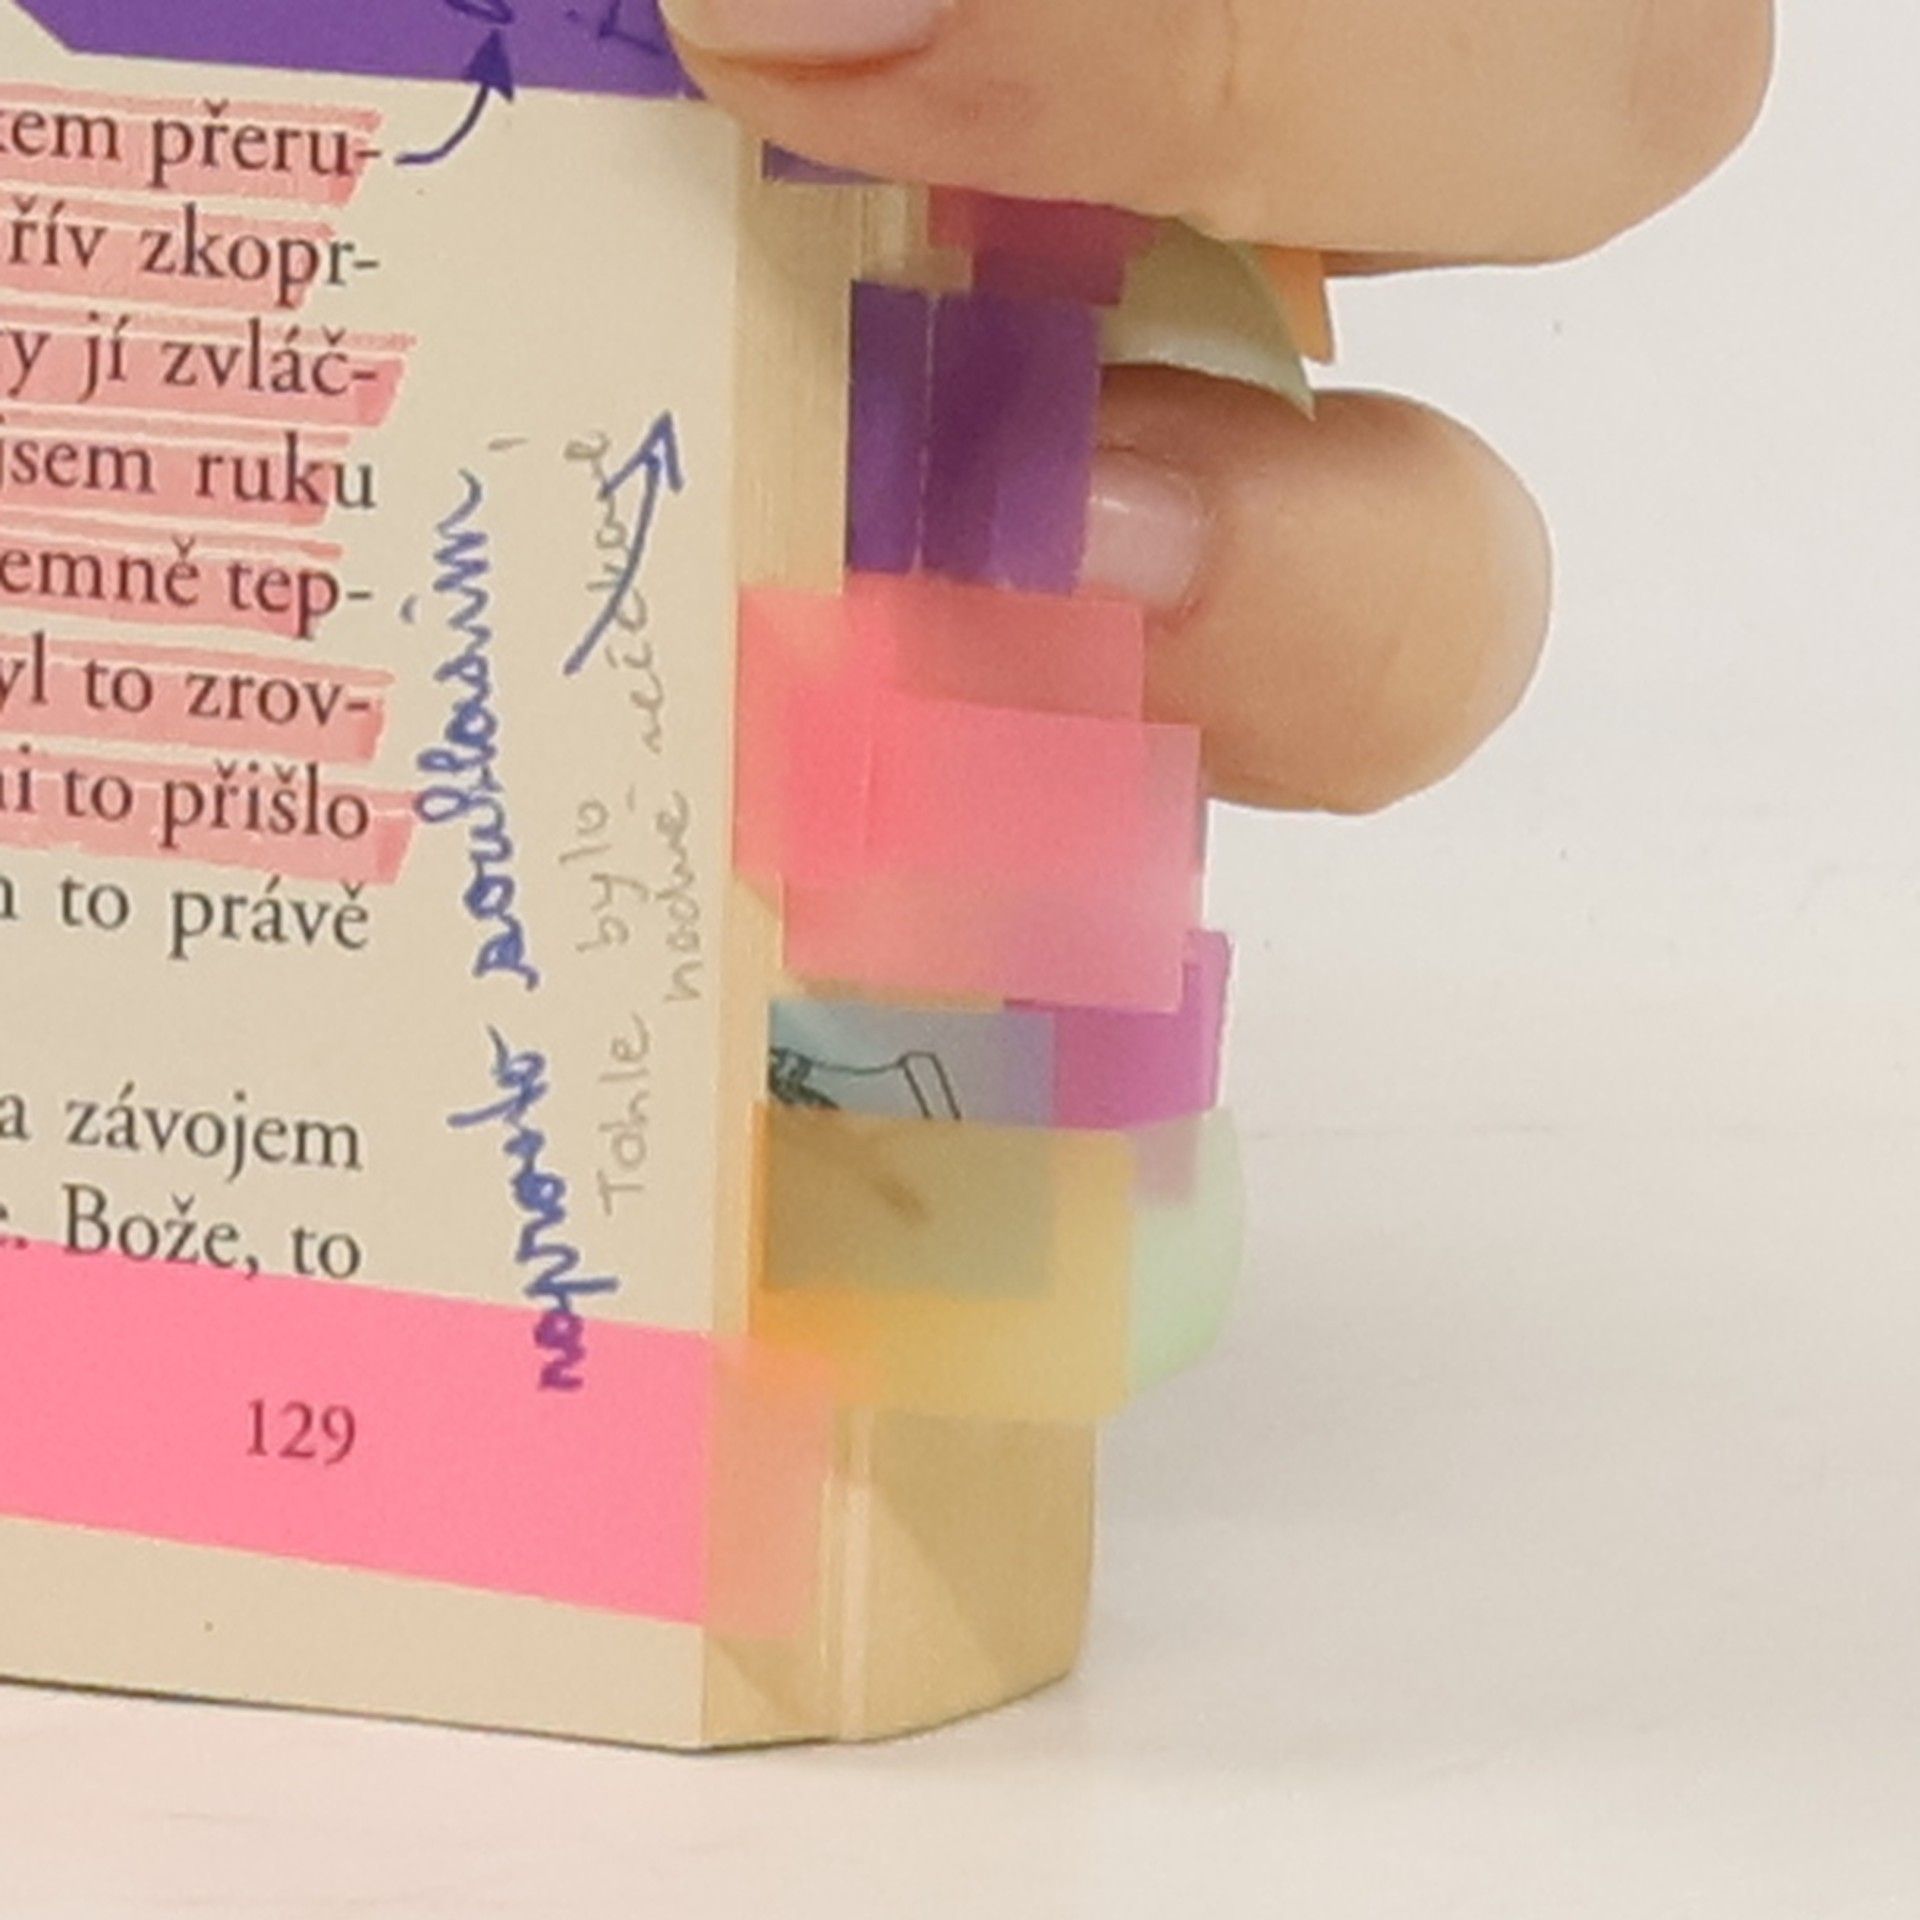 přeru-
řív zkopr-
y jí zvláč-
jsem ruku
emně tep-
yl to zrov-
i to přišlo
to právě
a závojem
Bože, to
129
naprosto souhlasím,
Tohle bylo nečekaně
hodně